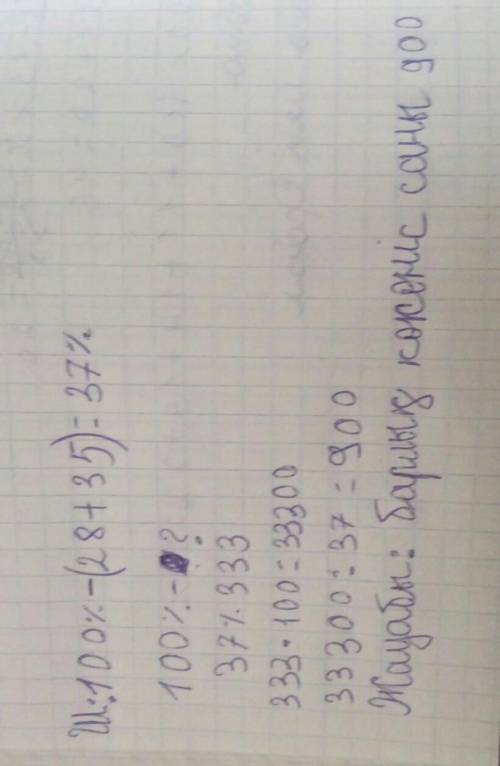 Ш: 100% - (28 + 35) = 37%
100% - ?
37% 333
333 • 100 = 33300
33300 : 37 = 900
Жауабы: барлық көкөніс саны 900